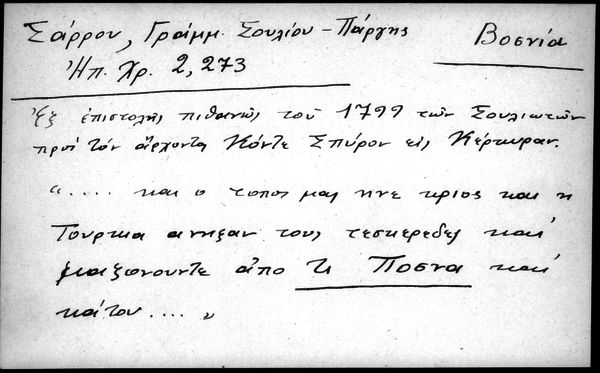 Σάρρου, Γράμμ. Σουλίου - Πάργης
Βοσνία
Ἠπ. Χρ. 2, 273
Ἐξ ἐπιστολῆς πιθανῶς τοῦ 1799 τῶν Σουλιωτῶν
πρὸς τὸν ἄρχοντα Κόντε Σπῦρον εἰς Κέρκυραν.
".... και ο τοπος μας ηνε κριος και η
Τουρκια ανηξαν τους τεσκερεδες καὶ
μαζωνουντε ἀπο τι Ποσνα καὶ
κάτου .... "